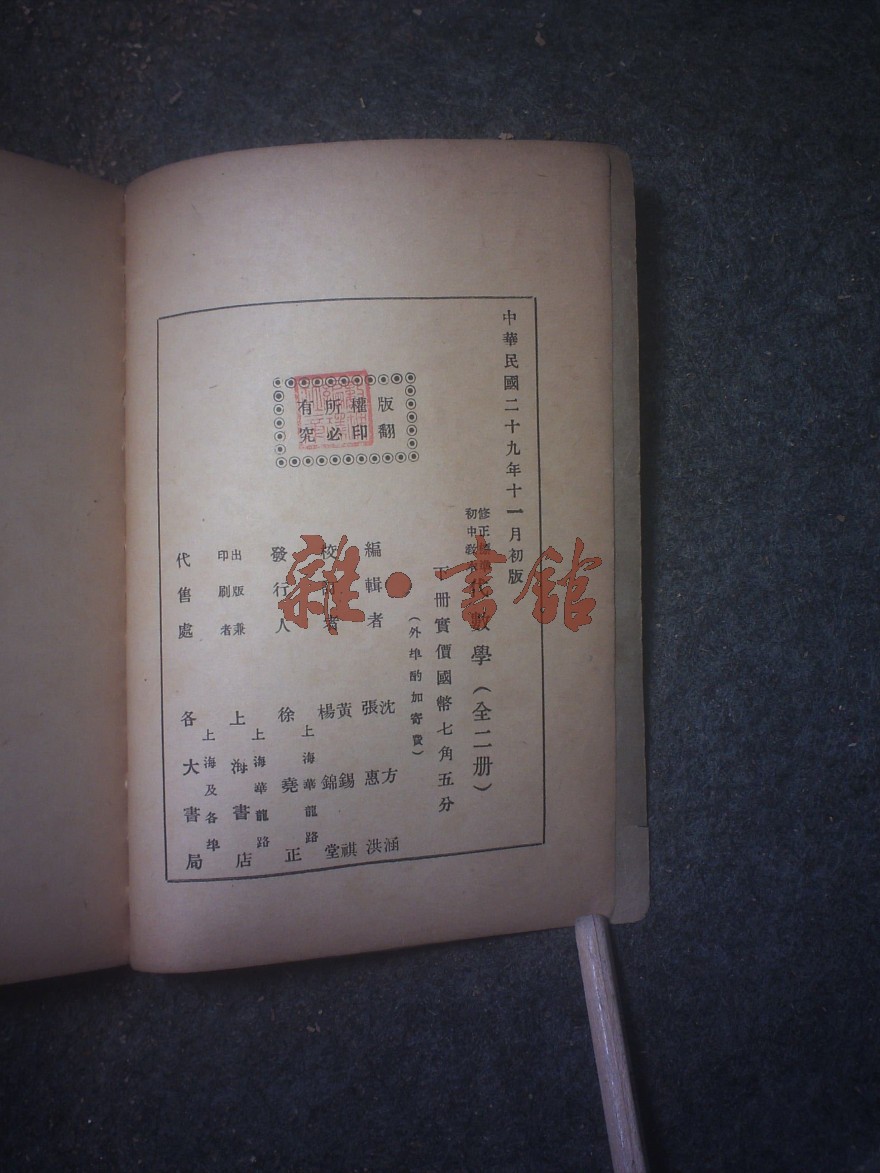 中華民國二十九年十一月初版
修正標準
初中教本
代數學（全二册）
下册實價國幣七角五分
（外埠酌加寄費）
版權所有
翻印必究
編輯者
沈方涵
張惠洪
校訂者
黃錫祺
楊錦堂
發行人
上海華龍路
徐堯正
出版兼
印刷者
上海華龍路
上海書店
代售處
上海及各埠
各大書局
雜·書館